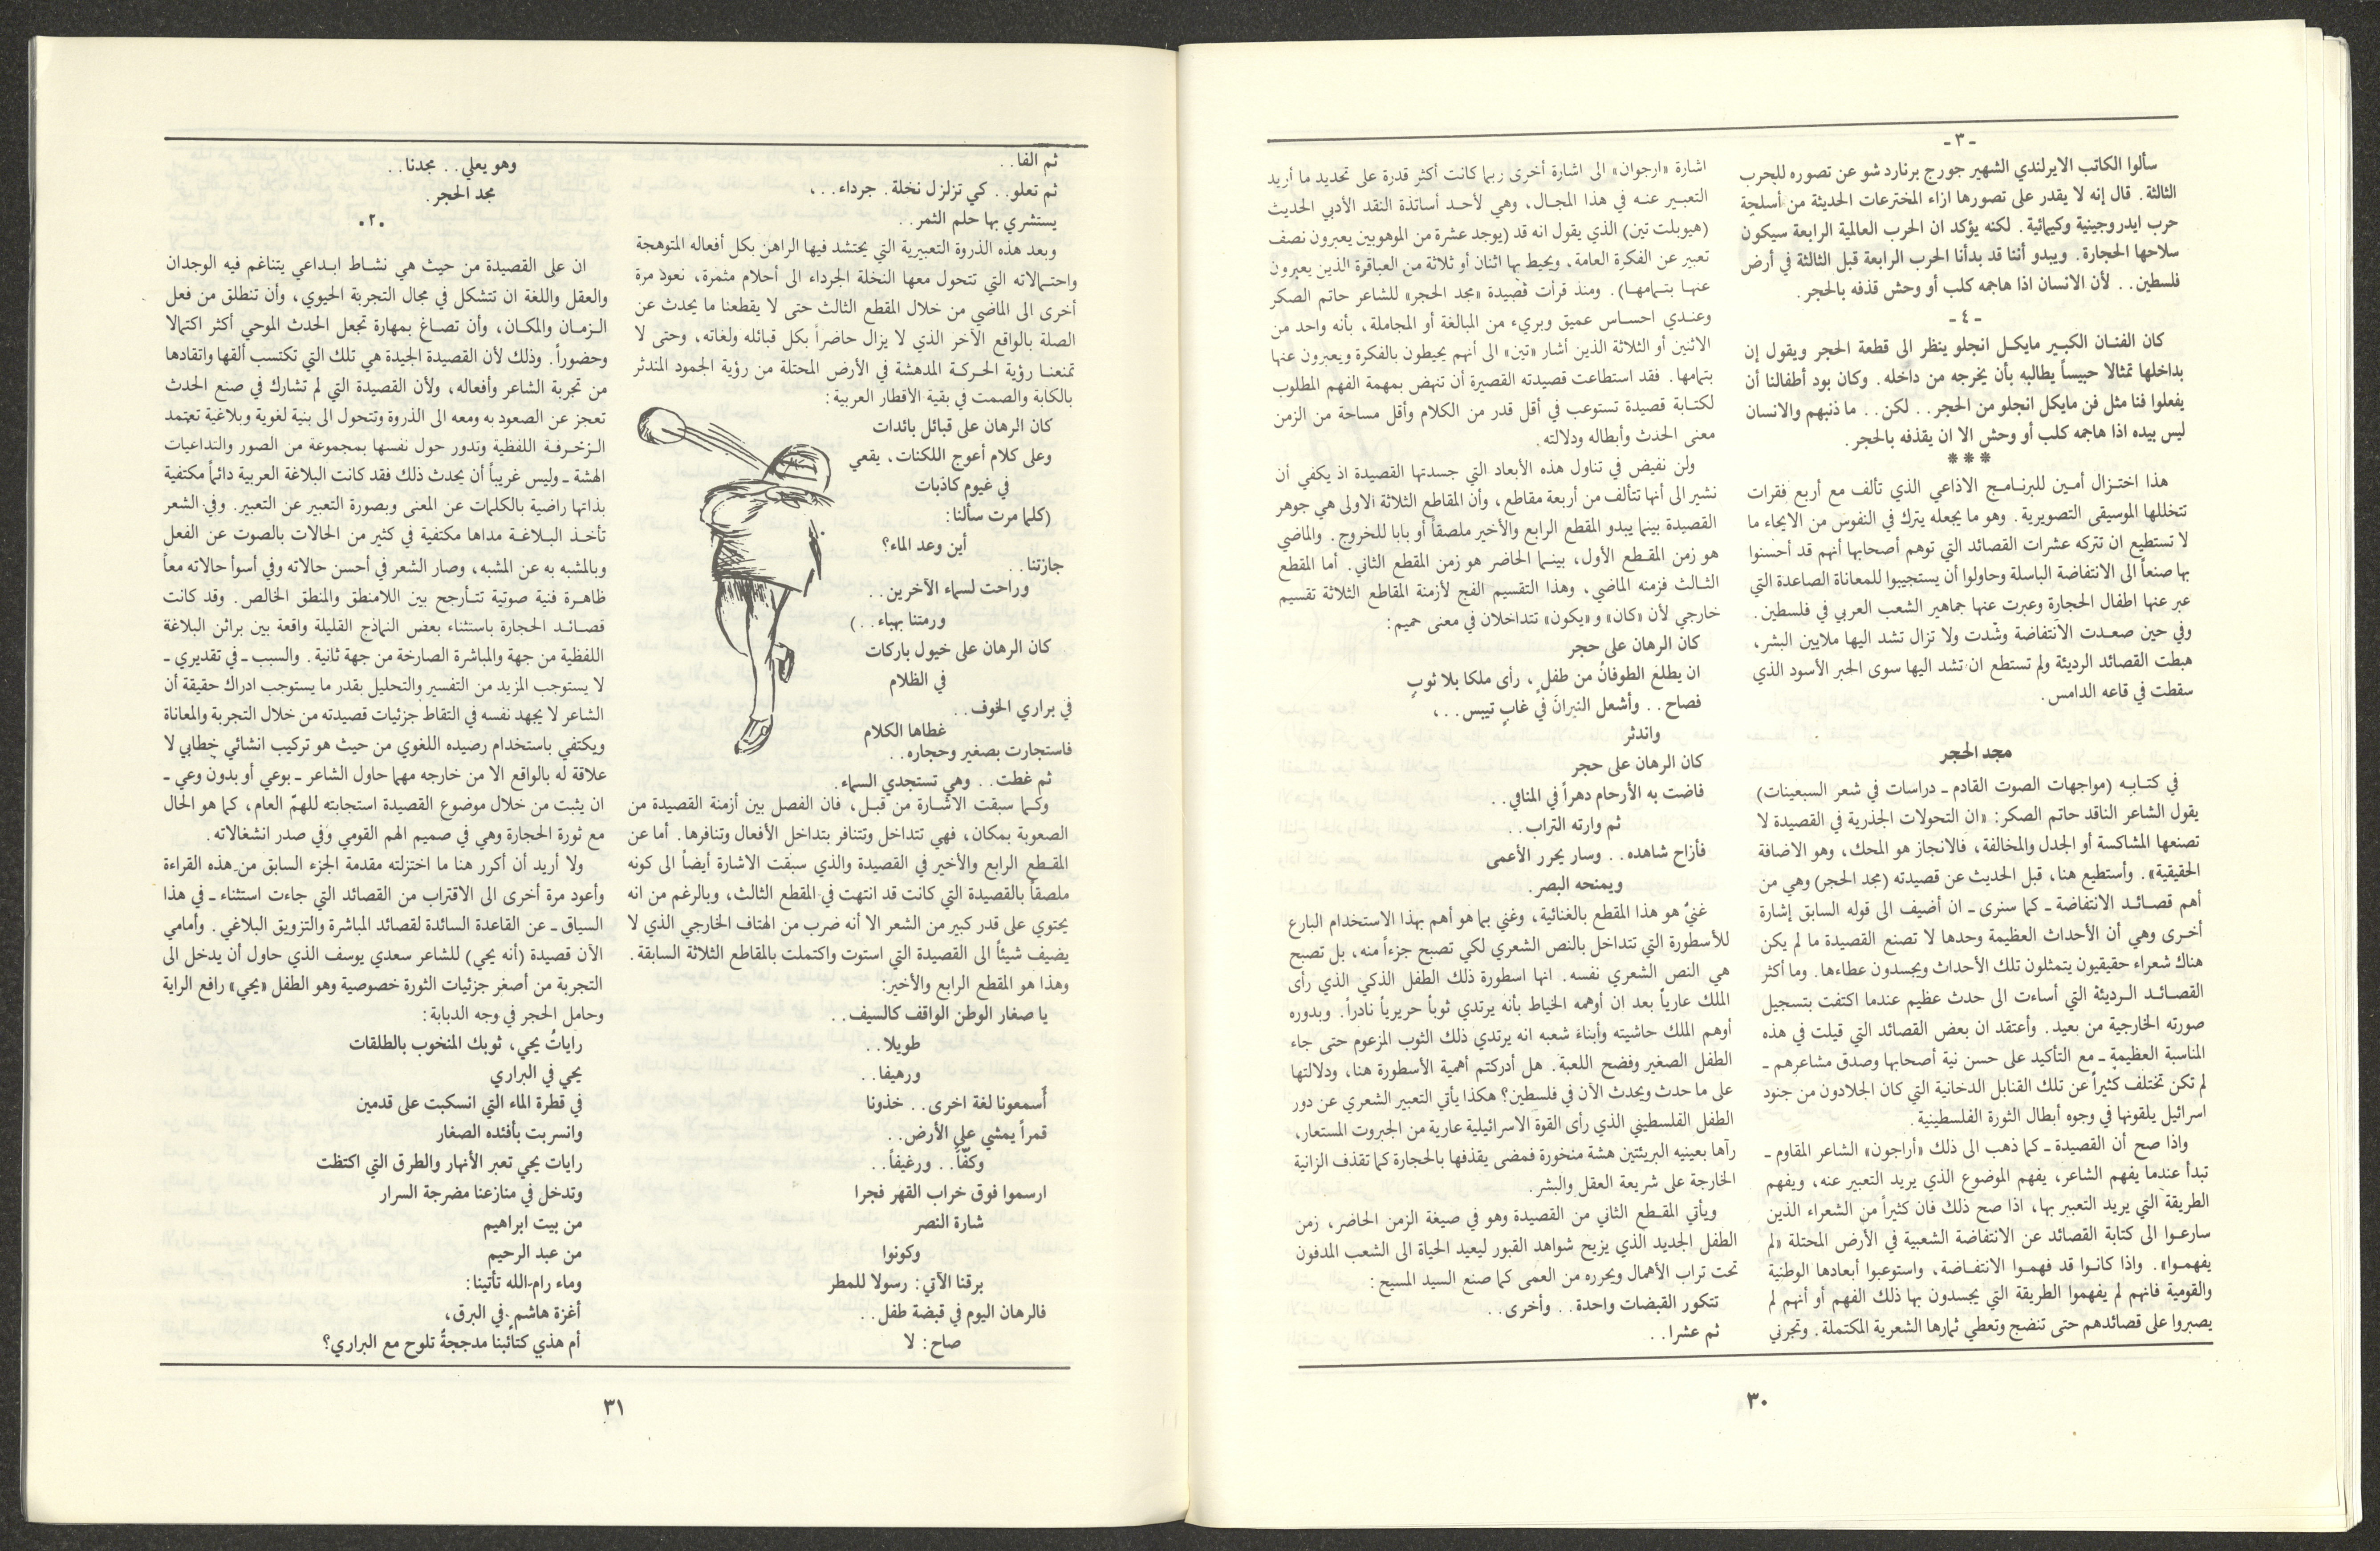 - ٣ -
سألوا الكاتب الايرلندي الشهير جورج برنارد شو عن تصوره للحرب
الثالثة. قال إنه لا يقدر على تصورها ازاء المخترعات الحديثة من أسلحة
حرب ايدروجينية وكيمائية. لكنه يؤكد ان الحرب العالمية الرابعة سيكون
سلاحها الحجارة. ويبدو أننا قد بدأنا الحرب الرابعة قبل الثالثة في أرض
فلسطين.. لأن الانسان اذا هاجمه كلب أو وحش قذفه بالحجر.
- ٤ -
كان الفنان الكبير مايكل انجلو ينظر الى قطعة الحجر ويقول إن
بداخلها تمثالا حبيساً يطالبه بأن يخرجه من داخله. وكان بود أطفالنا أن
يفعلوا فنا مثل فن مايكل انجلو من الحجر.. لكن.. ما ذنبهم والانسان
ليس بيده اذا هاجمه كلب أو وحش الا ان يقذفه بالحجر.
***
هذا اختزال أمين للبرنامج الاذاعي الذي تألف مع أربع فقرات
تتخللها الموسيقى التصويرية. وهو ما يجعله يترك في النفوس من الايحاء ما
لا تستطيع ان تتركه عشرات القصائد التي توهم أصحابها أنهم قد أحسنوا
بها صنعاً الى الانتفاضة الباسلة وحاولوا أن يستجيبوا للمعاناة الصاعدة التي
عبر عنها اطفال الحجارة وعبرت عنها جماهير الشعب العربي في فلسطين.
وفي حين صعدت الانتفاضة وشدت ولا تزال تشد اليها ملايين البشر،
هبطت القصائد الرديئة ولم تستطع ان تشد اليها سوى الحبر الأسود الذي
سقطت في قاعه الدامس.
مجد الحجر
في كتابه (مواجهات الصوت القادم ـ دراسات في شعر السبعينات)
يقول الشاعر الناقد حاتم الصكر: «ان التحولات الجذرية في القصيدة لا
تصنعها المشاكسة أو الجدل والمخالفة، فالانجاز هو المحك، وهو الاضافة
الحقيقية». وأستطيع هنا، قبل الحديث عن قصيدته (مجد الحجر) وهي من
أهم قصائد الانتفاضة ـ كما سنرى ـ ان أضيف الى قوله السابق إشارة
أخرى وهي أن الأحداث العظيمة وحدها لا تصنع القصيدة ما لم يكن
هناك شعراء حقيقيون يتمثلون تلك الأحداث ويجسدون عطاءها. وما أكثر
القصائد الرديئة التي أساءت الى حدث عظيم عندما اكتفت بتسجيل
صورته الخارجية من بعيد. وأعتقد ان بعض القصائد التي قيلت في هذه
المناسبة العظيمة ـ مع التأكيد على حسن نية أصحابها وصدق مشاعرهم ـ
لم تكن تختلف كثيراً عن تلك القنابل الدخانية التي كان الجلادون من جنود
اسرائيل يلقونها في وجوه أبطال الثورة الفلسطينية.
واذا صح أن القصيدة ـ كما ذهب الى ذلك «أراجون» الشاعر المقاوم ـ
تبدأ عندما يفهم الشاعر، يفهم الموضوع الذي يريد التعبير عنه، ويفهم
الطريقة التي يريد التعبير بها، اذا صح ذلك فان كثيراً من الشعراء الذين
سارعوا الى كتابة القصائد عن الانتفاضة الشعبية في الأرض المحتلة «لم
يفهموا». واذا كانوا قد فهموا الانتفاضة، واستوعبوا أبعادها الوطنية
والقومية فانهم لم يفهموا الطريقة التي يجسدون بها ذلك الفهم أو أنهم لم
يصبروا على قصائدهم حتى تنضج وتعطي ثمارها الشعرية المكتملة. وتجرني
اشارة «ارجوان» الى اشارة أخرى ربما كانت أكثر قدرة على تحديد ما أريد
التعبير عنه في هذا المجال، وهي لأحد أساتذة النقد الأدبي الحديث
(هيوبلت تين) الذي يقول انه قد (يوجد عشرة من الموهوبين يعبرون نصف
تعبير عن الفكرة العامة، ويحيط بها اثنان أو ثلاثة من العباقرة الذين يعبرون
عنها بتمامها). ومنذ قرأت قصيدة «مجد الحجر» للشاعر حاتم الصكر
وعندي احساس عميق وبريء من المبالغة أو المجاملة، بأنه واحد من
الاثنين أو الثلاثة الذين أشار «تين» الى أنهم يحيطون بالفكرة ويعبرون عنها
بتمامها. فقد استطاعت قصيدته القصيرة أن تنهض بمهمة الفهم المطلوب
لكتابة قصيدة تستوعب في أقل قدر من الكلام وأقل مساحة من الزمن
معنى الحدث وأبطاله ودلالته.
ولن نفيض في تناول هذه الأبعاد التي جسدتها القصيدة اذ يكفي أن
نشير الى أنها تتألف من أربعة مقاطع، وأن المقاطع الثلاثة الاولى هي جوهر
القصيدة بينما يبدو المقطع الرابع والأخير ملصقاً أو بابا للخروج. والماضي
هو زمن المقطع الأول، بينما الحاضر هو زمن المقطع الثاني. أما المقطع
الثالث فزمنه الماضي، وهذا التقسيم الفج لأزمنة المقاطع الثلاثة تقسيم
خارجي لأن «كان» و«يكون» تتداخلان في معنى حميم:
كان الرهان على حجر
ان يطلع الطوفانُ من طفلٍ، رأى ملكا بلا ثوبٍ
فصاح.. وأشعل النيران في غابٍ تيبس..،
واندثر
كان الرهان على حجر
فاضت به الأرحام دهراً في المنافي..
ثم وارته التراب..
فأزاح شاهده.. وسار يحرر الأعمى
ويمنحه البصر.
غنيٌ هو هذا المقطع بالغنائية، وغني بما هو أهم بهذا الاستخدام البارع
للأسطورة التي تتداخل بالنص الشعري لكي تصبح جزءاً منه، بل تصبح
هي النص الشعري نفسه. انها اسطورة ذلك الطفل الذكي الذي رأى
الملك عارياً بعد ان أوهمه الخياط بأنه يرتدي ثوباً حريرياً نادراً. وبدوره
أوهم الملك حاشيته وأبناء شعبه انه يرتدي ذلك الثوب المزعوم حتى جاء
الطفل الصغير وفضح اللعبة. هل أدركتم أهمية الأسطورة هنا، ودلالتها
على ما حدث ويحدث الآن في فلسطين؟ هكذا يأتي التعبير الشعري عن دور
الطفل الفلسطيني الذي رأى القوة الاسرائيلية عارية من الجبروت المستعار،
رآها بعينيه البريئتين هشة منخورة فمضى يقذفها بالحجارة كما تقذف الزانية
الخارجة على شريعة العقل والبشر.
ويأتي المقطع الثاني من القصيدة وهو في صيغة الزمن الحاضر، زمن
الطفل الجديد الذي يزيح شواهد القبور ليعيد الحياة الى الشعب المدفون
تحت تراب الأهمال ويحرره من العمى كما صنع السيد المسيح:
تتكور القبضات واحدة.. وأخرى..
ثم عشرا..
٣٠
ثم الفا..
ثم تعلو.. كي تزلزل نخلة. جرداء..،
يستشري بها حلم الثمر..
وبعد هذه الذروة التعبيرية التي يحتشد فيها الراهن بكل أفعاله المتوهجة
واحتمالاته التي تتحول معها النخلة الجرداء الى أحلام مثمرة، نعود مرة
أخرى الى الماضي من خلال المقطع الثالث حتى لا يقطعنا ما يحدث عن
الصلة بالواقع الآخر الذي لا يزال حاضراً بكل قبائله ولغاته، وحتى لا
تمنعنا رؤية الحركة المدهشة في الأرض المحتلة من رؤية الجمود المندثر
بالكابة والصمت في بقية الأقطار العربية:
كان الرهان على قبائل بائدات
وعلى كلام أعوج اللكنات، يقعي
في غيوم كاذبات
(كلما مرت سألنا:
أين وعد الماء؟
جازتنا..
وراحت لسماء الآخرين..
ورمتنا بهباء..)
كان الرهان على خيول باركات
في الظلام
في براري الخوف..
غطاها الكلام
فاستجارت بصغير وحجاره..
ثم غطت.. وهي تستجدي السماء.
وكما سبقت الاشارة من قبل، فان الفصل بين أزمنة القصيدة من
الصعوبة بمكان، فهي تتداخل وتتنافر بتداخل الأفعال وتنافرها. أما عن
المقطع الرابع والأخير في القصيدة والذي سبقت الاشارة أيضاً الى كونه
ملصقاً بالقصيدة التي كانت قد انتهت في المقطع الثالث، وبالرغم من انه
يحتوي على قدر كبير من الشعر الا أنه ضرب من الهتاف الخارجي الذي لا
يضيف شيئاً الى القصيدة التي استوت واكتملت بالمقاطع الثلاثة السابقة.
وهذا هو المقطع الرابع والأخير:
يا صغار الوطن الواقف كالسيف..
طويلا..
ورهيفا..
أسمعونا لغة اخرى.. خذونا
قمراً يمشي على الأرض..
وكفّاً.. ورغيفاً..
ارسموا فوق خراب القهر فجرا
شارة النصر
وكونوا
برقنا الآتي: رسولا للمطر
فالرهان اليوم في قبضة طفل..
صاح: لا
وهو يعلي.. مجدنا..
مجد الحجر.
.٢.
ان على القصيدة من حيث هي نشاط ابداعي يتناغم فيه الوجدان
والعقل واللغة ان تتشكل في مجال التجربة الحيوي، وأن تنطلق من فعل
الزمان والمكان، وأن تصاغ بمهارة تجعل الحدث الموحي أكثر اكتمالا
وحضوراً. وذلك لأن القصيدة الجيدة هي تلك التي تكتسب ألقها واتقادها
من تجربة الشاعر وأفعاله، ولأن القصيدة التي لم تشارك في صنع الحدث
تعجز عن الصعود به ومعه الى الذروة وتتحول الى بنية لغوية وبلاغية تعتمد
الزخرفة اللفظية وتدور حول نفسها بمجموعة من الصور والتداعيات
الهشة ـ وليس غريباً أن يحدث ذلك فقد كانت البلاغة العربية دائماً مكتفية
بذاتها راضية بالكلمات عن المعنى وبصورة التعبير عن التعبير. وفي الشعر
تأخذ البلاغة مداها مكتفية في كثير من الحالات بالصوت عن الفعل
وبالمشبه به عن المشبه، وصار الشعر في أحسن حالاته وفي أسوأ حالاته معاً
ظاهرة فنية صوتية تتأرجح بين اللامنطق والمنطق الخالص. وقد كانت
قصائد الحجارة باستثناء بعض النماذج القليلة واقعة بين براثن البلاغة
اللفظية من جهة والمباشرة الصارخة من جهة ثانية. والسبب ـ في تقديري ـ
لا يستوجب المزيد من التفسير والتحليل بقدر ما يستوجب ادراك حقيقة أن
الشاعر لا يجهد نفسه في التقاط جزئيات قصيدته من خلال التجربة والمعاناة
ويكتفي باستخدام رصيده اللغوي من حيث هو تركيب انشائي خطابي لا
علاقة له بالواقع الا من خارجه مهما حاول الشاعر ـ بوعي أو بدون وعي ـ
ان يثبت من خلال موضوع القصيدة استجابته للهمّ العام، كما هو الحال
مع ثورة الحجارة وهي في صميم الهم القومي وفي صدر انشغالاته.
ولا أريد أن أكرر هنا ما اختزلته مقدمة الجزء السابق من هذه القراءة
وأعود مرة أخرى الى الاقتراب من القصائد التي جاءت استثناء ـ في هذا
السياق ـ عن القاعدة السائدة لقصائد المباشرة والتزويق البلاغي. وأمامي
الآن قصيدة (أنه يحي) للشاعر سعدي يوسف الذي حاول أن يدخل الى
التجربة من أصغر جزئيات الثورة خصوصية وهو الطفل «يحي» رافع الراية
وحامل الحجر في وجه الدبابة:
راياتُ يحي، ثوبك المنخوب بالطلقات
يحي في البراري
في قطرة الماء التي انسكبت على قدمين
وانسربت بأفئده الصغار
رايات يحي تعبر الأنهار والطرق التي اكتظت
وتدخل في منازعنا مضرجة السرار
من بيت ابراهيم
من عبد الرحيم
وماء رام الله تأتينا:
أغزة هاشم في البرق،
أم هذي كتائبنا مدججةً تلوح مع البراري؟
٣١